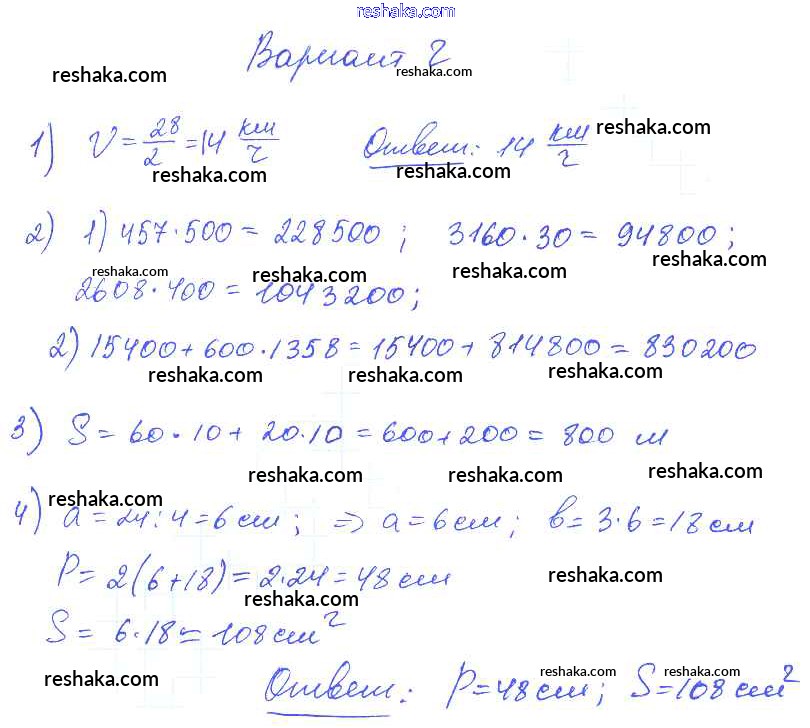 reshaka.com
Вариант 2
reshaka.com reshaka.com
1) V = 28/2 = 14 км/ч Ответ: 14 км/ч reshaka.com
reshaka.com reshaka.com
2) 1) 457·500 = 228500 ; 3160·30 = 94800 ;
reshaka.com reshaka.com reshaka.com reshaka.com
2608·400 = 1043200 ;
2) 15400 + 600·1358 = 15400 + 814800 = 830200
reshaka.com reshaka.com reshaka.com
3) S = 60·10 + 20·10 = 600 + 200 = 800 м
reshaka.com reshaka.com reshaka.com
reshaka.com
4) a = 24 : 4 = 6 см ; ⇒ a = 6 см ; в = 3·6 = 18 см
P = 2(6+18) = 2·24 = 48 см reshaka.com
reshaka.com
S = 6·18 = 108 см²
reshaka.com reshaka.com reshaka.com
Ответ: P = 48 см ; S = 108 см²